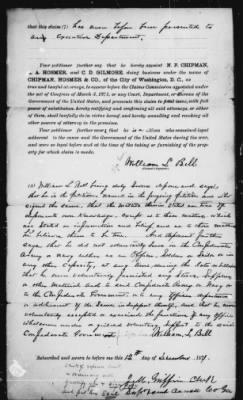 that this claim (?) has never before been presented to
any Executive Department.
Your petitioner further say that he hereby appoint N. P. CHIPMAN,
A. A. HOSMER, and C. D. GILMORE, doing business under the name of
CHIPMAN, HOSMER & CO., of the City of Washington, D. C., as
true and lawful attorneys, to appear before the Claims Commission appointed under
the act of Congress of March 3, 1871, or any Court, Department, or Bureau of the
Government of the United States, and prosecute this claim to final issue, with full
power of substitution, hereby ratifying and confirming all said attorneys, or either
of them, shall lawfully do in virtue hereof, and hereby annulling and revoking all
other powers of attorney in the premises.
Your petitioner further say that he is a citizen who remained loyal
adherent to the cause and the Government of the United States during the war,
and was so loyal before and at the time of the taking or furnishing of the property
for which claim is made.
William L. Bell
William L. Bell being duly sworn deposes and says,
that he is the petitioner named in the foregoing petition and who
signed the same, that the matters therein stated are true of
deponents own knowledge, except as to those matters which
are stated on information and belief, and as to those matters
he believes them to be true. And deponent further
says that he did not voluntarily serve in the Confederate
Army or Navy either as an Officer, Soldier or Sailor or in
any other capacity, at any time during the late rebellion
that he never voluntarily furnished any Stores, Supplies
or other material aid to said Confederate Army or Navy or
to the Confederate Government or to any Officer department
or adherent of the same in support thereof, and that he never
voluntarily accepted or exercised the functions of any Office
whatsoever under or yielded voluntary support to the said
Confederate Government.
William L. Bell
Subscribed and sworn to before me this 12th of December 1871.